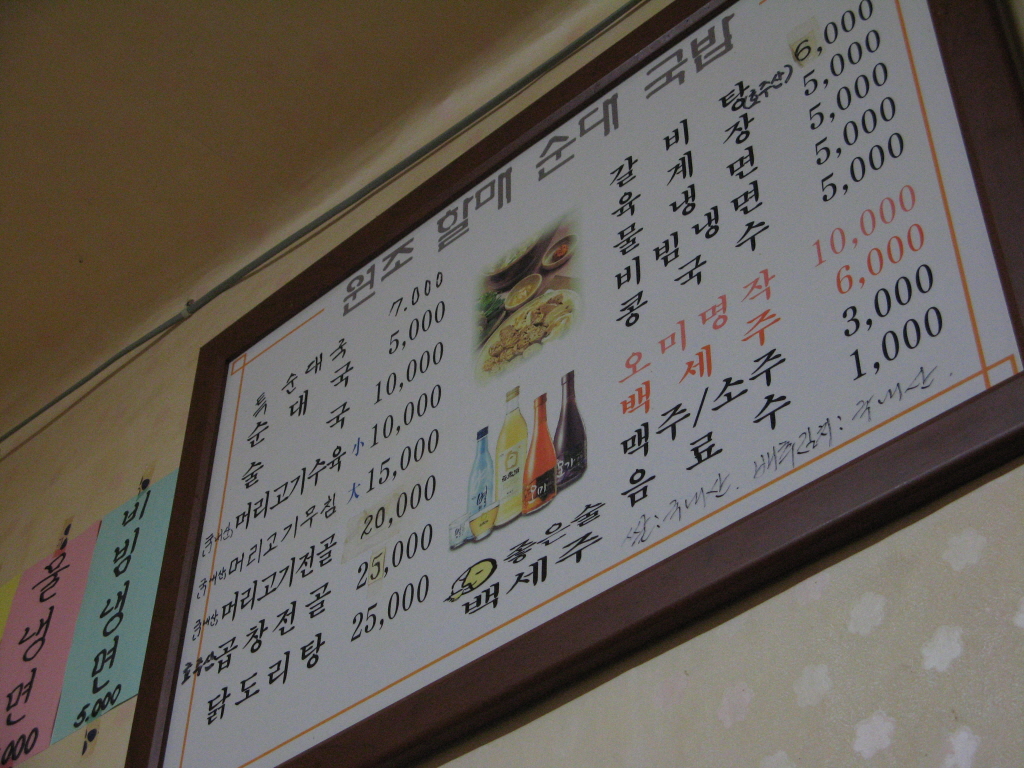 원조 할매 순대 국밥
특 순대국 7,000
순대국 5,000
술국 10,000
국내산 머리고기수육 小 10,000
大 15,000
국내산 머리고기무침 20,000
국내산 머리고기전골 25,000
호주산 곱창전골 25,000
닭도리탕
갈비탕(호주산) 6,000
육계장 5,000
물냉면 5,000
비빔냉면 5,000
콩국수 5,000
오미명작 10,000
백세주 6,000
맥주/소주 3,000
음료수 1,000
좋은술
백세주
쌀:국내산. 배추김치: 국내산.
비빔냉면
5,000
물냉면
000